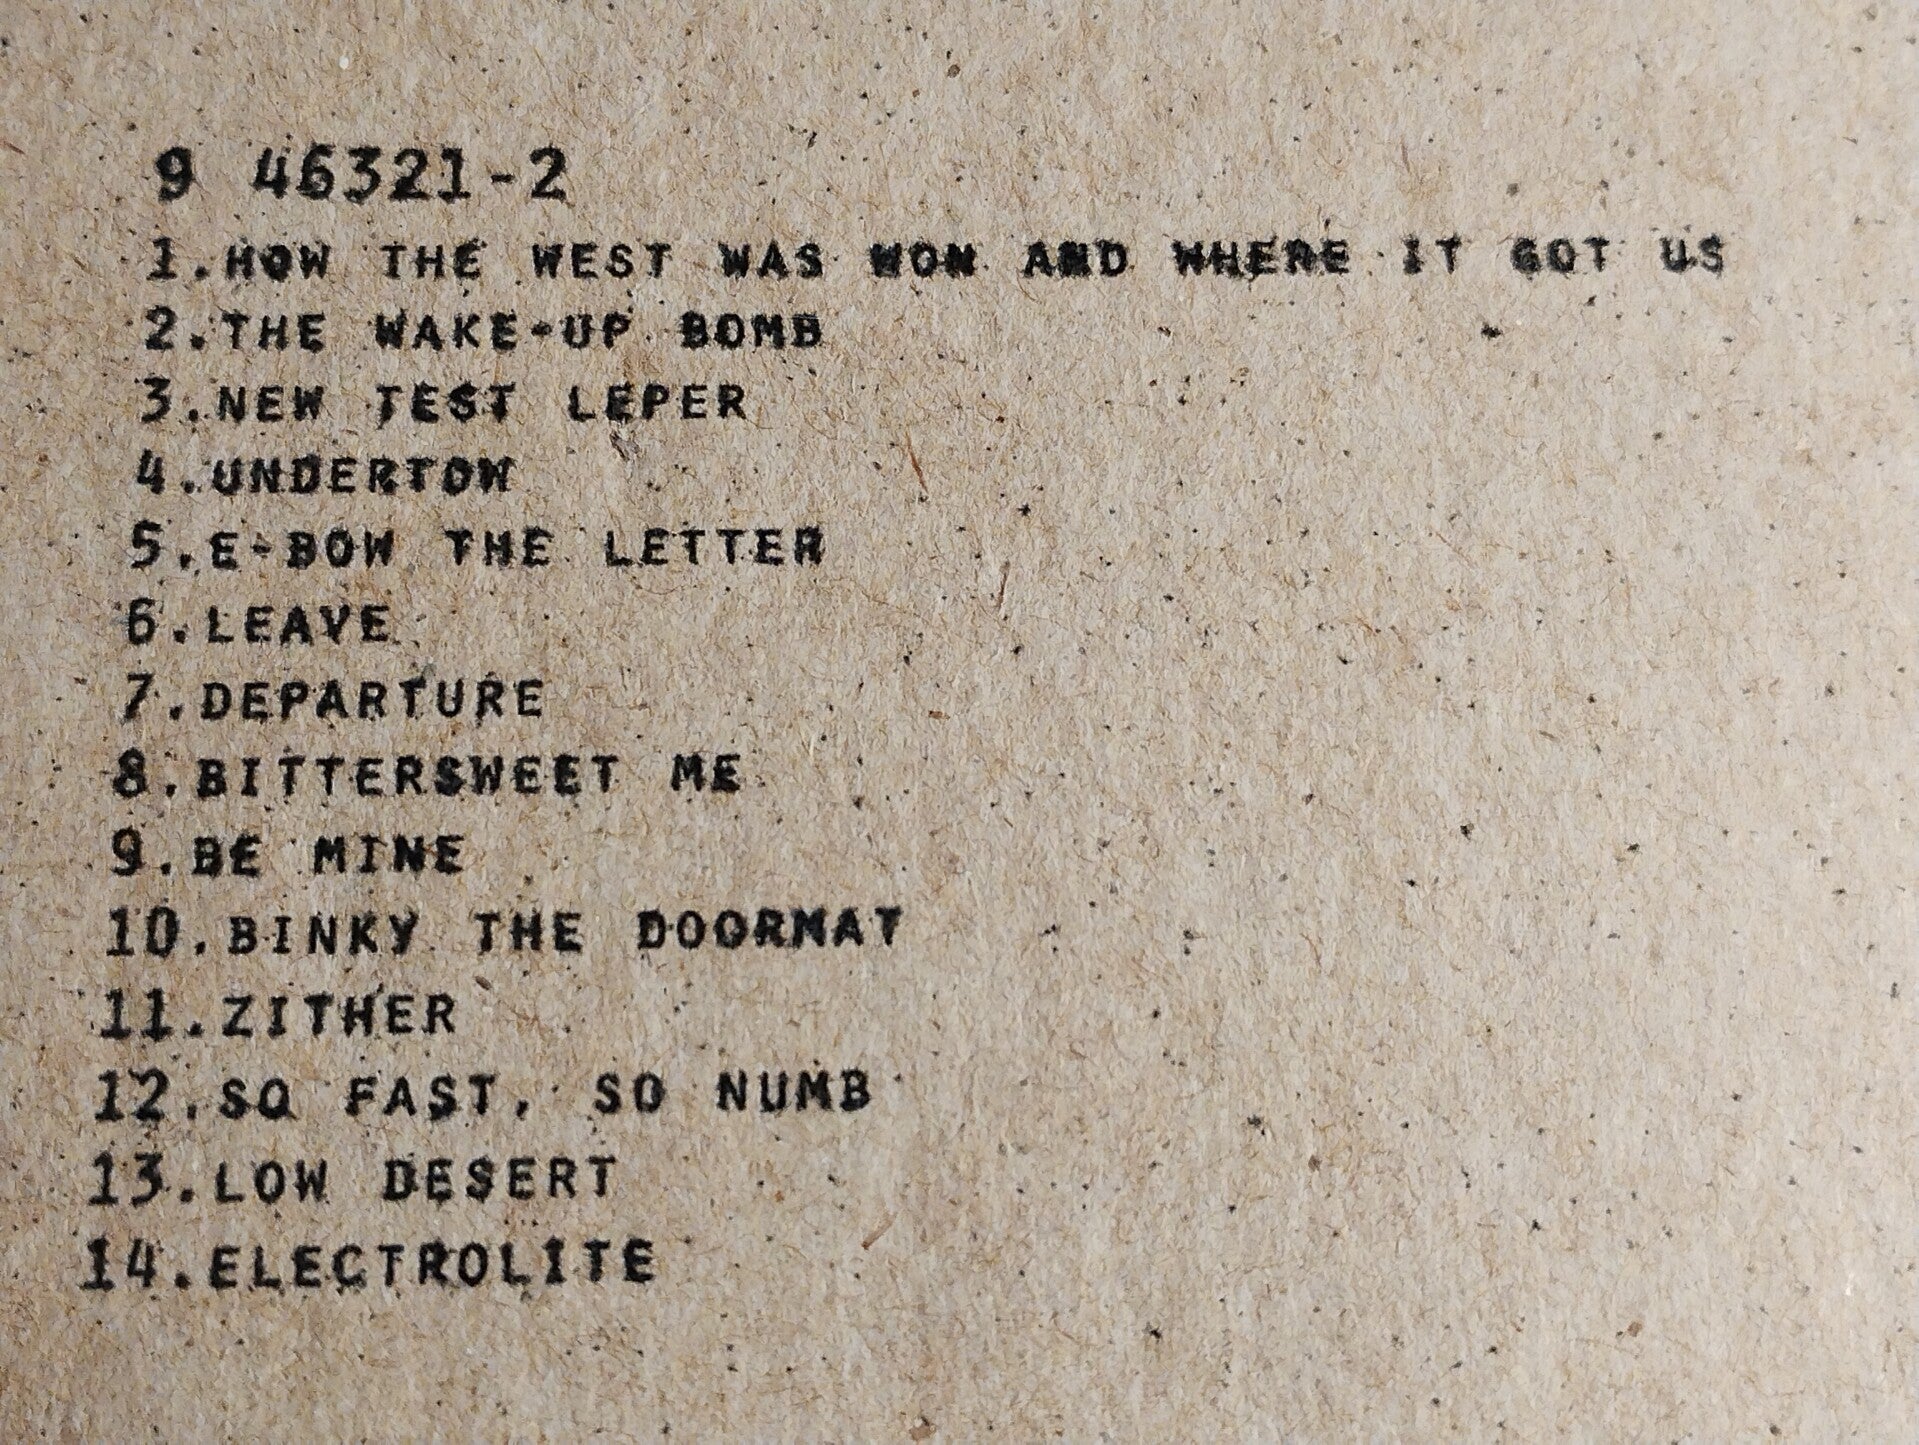 9 46321-2
1.HOW THE WEST WAS WON AND WHERE IT GOT US
2.THE WAKE-UP BOMB
3.NEW TEST LEPER
4.UNDERTOW
5.E-BOW THE LETTER
6.LEAVE
7.DEPARTURE
8.BITTERSWEET ME
9.BE MINE
10.BINKY THE DOORMAT
11.ZITHER
12.SO FAST, SO NUMB
13.LOW DESERT
14.ELECTROLITE